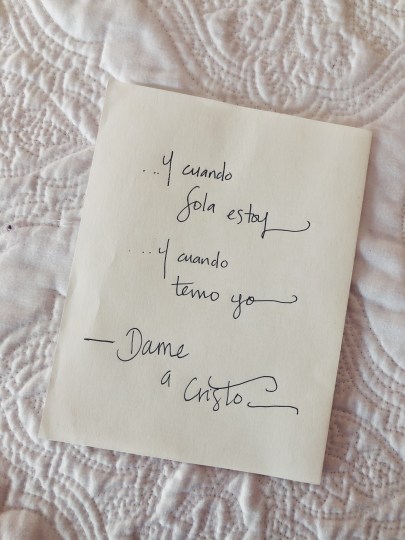 ...Y cuando
Sola estoy
...Y cuando
temo yo
— Dame
a
Cristo